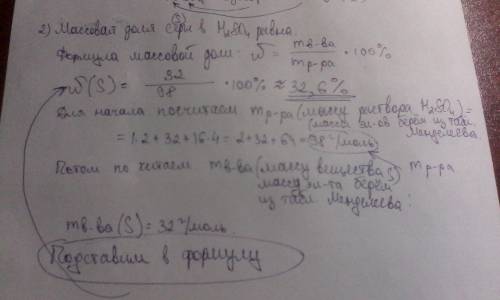 2) Массовая доля серы в H₂SO₄ равна.
(S)
Формула массовой доли: ω = mв-ва / mр-ра · 100%
ω(S) = 32 / 98 · 100% ≈ 32,6%
Для начала посчитаем mр-ра (массу раствора H₂SO₄) =
(массы эл-ов берём из табл.
= 1·2 + 32 + 16·4 = 2 + 32 + 64 = 98 г/моль) Менделеева.
Потом mв-ва (массу вещества S) mр-ра
масса эл-та берём
из табл. Менделеева:
mв-ва (S) = 32 г/моль.
Подставим в формулу